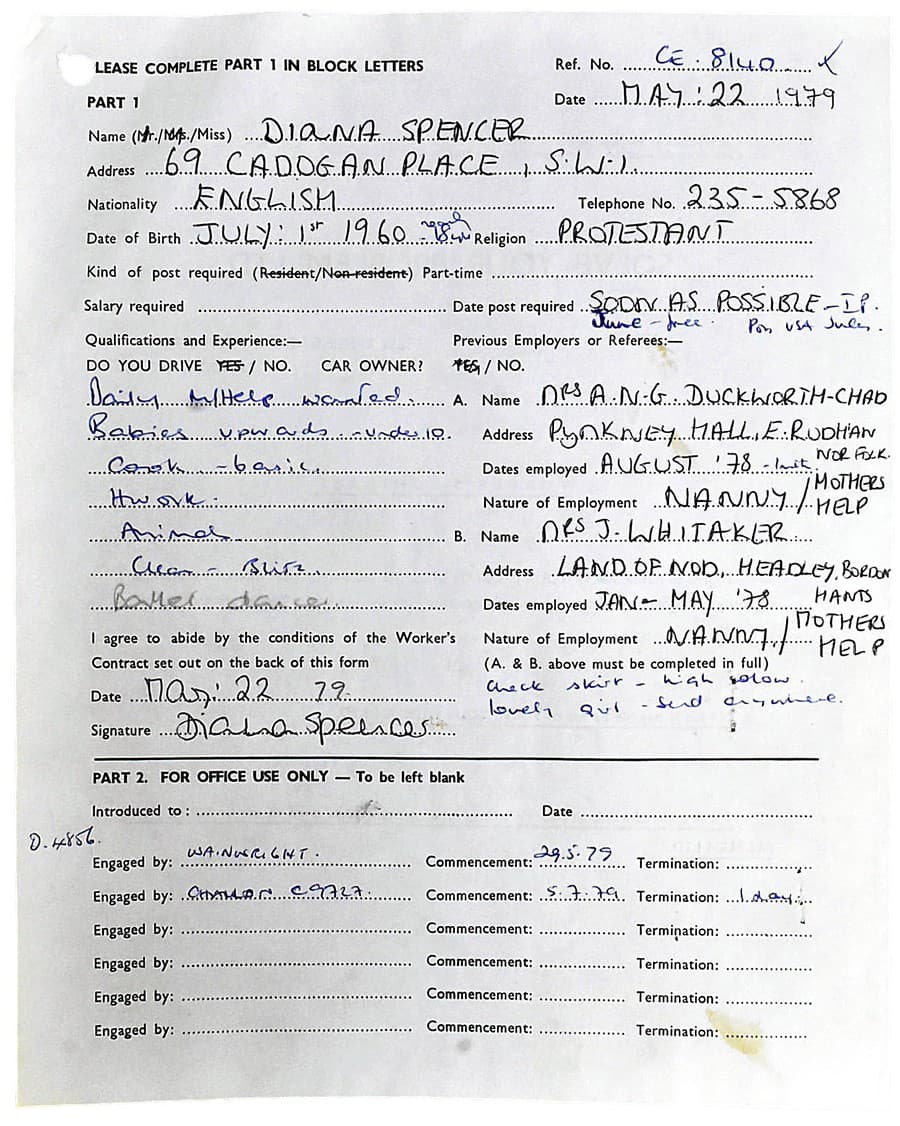 LEASE COMPLETE PART 1 IN BLOCK LETTERS
Ref. No. CE. 8140
PART 1
Date MAY: 22 1979
Name (Mr./Mrs./Miss) DIANA SPENCER
Address 69 CADOGAN PLACE, S.W.1.
Nationality ENGLISH
Telephone No. 235-5868
Date of Birth JULY: 1st 1960 Religion PROTESTANT
Kind of post required (Resident/Non-resident) Part-time
Salary required
Date post required SOON AS POSSIBLE - I.P.
June - free. Poss USA July.
Qualifications and Experience:—
Previous Employers or Referees:—
DO YOU DRIVE YES / NO. CAR OWNER? YES / NO.
Daily M/Help wanted.
A. Name MRS A.N.G. DUCKWORTH-CHAD
Babies upwards - under 10.
Address PYNKNEY HALL, E. RUDHAN
NORFOLK.
Cook - basic.
Dates employed AUGUST '78
Hwork.
Nature of Employment NANNY / MOTHERS
HELP
Animals
B. Name MRS J. WHITAKER
Clean - Blitz.
Address LAND OF NOD, HEADLEY, BORDON
HANTS
Ballet dance
Dates employed JAN - MAY '78
I agree to abide by the conditions of the Worker's
Contract set out on the back of this form
Nature of Employment NANNY / MOTHERS
HELP
(A. & B. above must be completed in full)
Date May: 22 79.
check skirt - high
lovely girl - send anywhere.
Signature Diana Spencer
PART 2. FOR OFFICE USE ONLY — To be left blank
Introduced to : Date
D.4856.
Engaged by: WAINWRIGHT. Commencement: 29.5.79 Termination:
Engaged by: CHALLON C9727. Commencement: 5.7.79 Termination: 1 day.
Engaged by: Commencement: Termination:
Engaged by: Commencement: Termination:
Engaged by: Commencement: Termination:
Engaged by: Commencement: Termination: